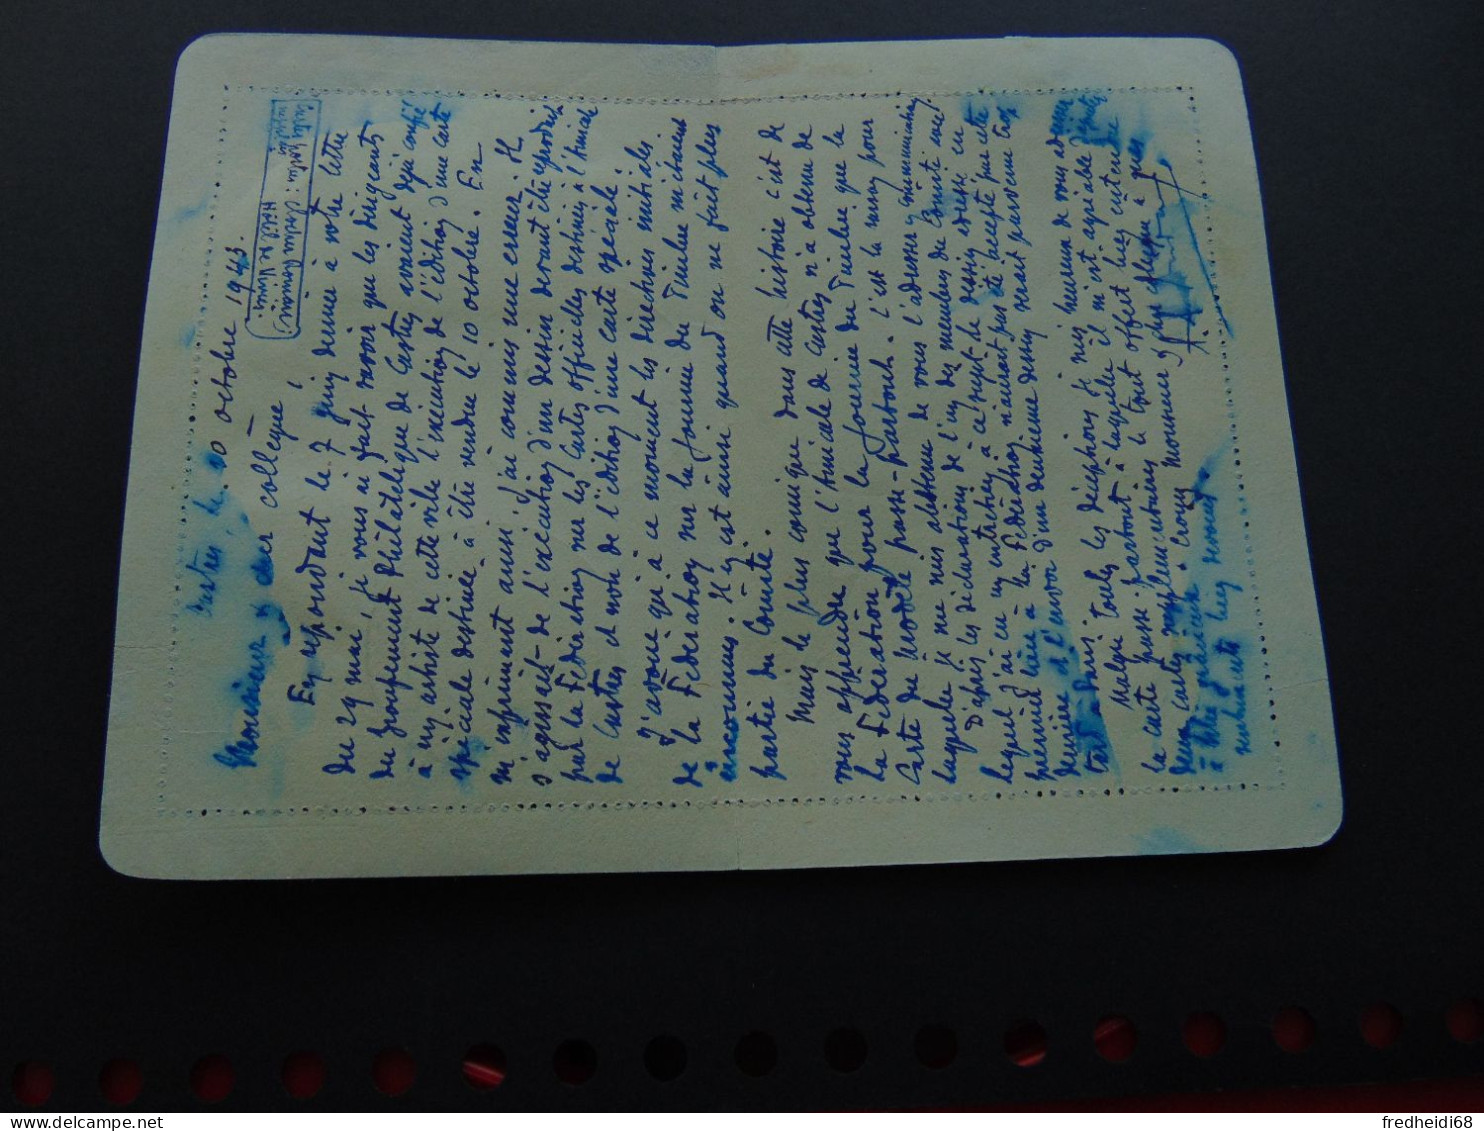 Castres, le 10 octobre 1943.
Monsieur et cher collègue,
En répondant le 7 juin dernier à votre lettre
du 29 mai, je vous ai fait savoir que les dirigeants
du groupement Philatélique de Castres avaient déjà confié
à un artiste de cette ville l'exécution de l'édition d'une carte
spéciale destinée à être vendue le 10 octobre. En
m'exprimant ainsi, j'ai commis une erreur. Il
s'agissait de l'exécution d'un dessin devant être reproduit
par la Fédération sur les cartes officielles destinées à l'Amicale
de Castres et non de l'édition d'une carte spéciale.
J'avoue qu'à ce moment les directives initiales
de la Fédération sur la Journée du Timbre m'étaient
inconnues. Il en est ainsi quand on ne fait plus
partie du Comité.
Mais le plus comique dans cette histoire c'est de
vous apprendre que l'Amicale de Castres n'a obtenu de
la Fédération pour la Journée du Timbre que la
Carte de modèle passe-partout. C'est la raison pour
laquelle je me suis abstenu de vous l'adresser
D'après les déclarations de l'un des membres du Comité avec
lequel j'ai eu un entretien à ce sujet le dessin adressé en
premier lieu à la Fédération n'aurait pas été accepté par cette
dernière et l'envoi d'un deuxième dessin serait parvenu trop
tard à Paris.
Malgré toutes les déceptions je suis heureux de vous adresser
la carte passe partout à laquelle il m'est agréable d'ajouter
deux cartes supplémentaires le tout offert bien entendu
à titre gracieux. Croyez Monsieur et cher collègue à mes
sentiments bien dévoués
Hôtel de Ville
fredheidi68